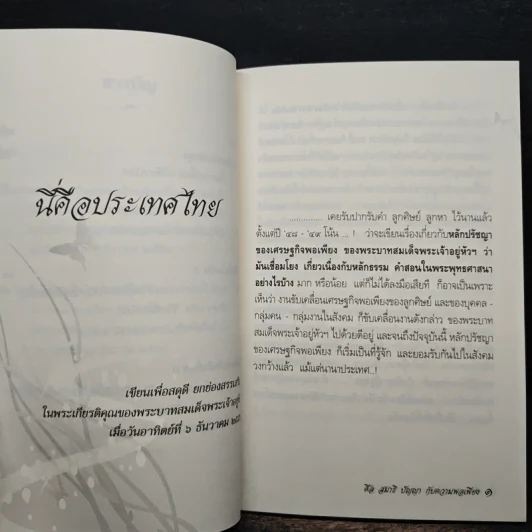 นี่คือประเทศไทย
เขียนเพื่อสดุดี ยกย่องสรรเสริญ
ในพระเกียรติคุณของพระบาทสมเด็จพระเจ้าอยู่
เมื่อวันอาทิตย์ที่ ๖ ธันวาคม
.............. เคยรับปากรับคำ ลูกศิษย์ ลูกหา ไว้นานแล้ว
ตั้งแต่ปี '๔๘ - '๔๙ โน้น ... ! ว่าจะเขียนเรื่องเกี่ยวกับหลักปรัชญา
ของเศรษฐกิจพอเพียง ของพระบาทสมเด็จพระเจ้าอยู่หัวฯ ว่า
มันเชื่อมโยง เกี่ยวเนื่องกับหลักธรรม คำสอนในพระพุทธศาสนา
อย่างไรบ้าง มาก หรือน้อย แต่ก็ไม่ได้ลงมือเสียที ก็อาจเป็นเพราะ
เห็นว่า งานขับเคลื่อนเศรษฐกิจพอเพียงของลูกศิษย์ และของบุคคล -
กลุ่มคน - กลุ่มงานในสังคม ก็ขับเคลื่อนงานดังกล่าว ของพระบาท
สมเด็จพระเจ้าอยู่หัวฯ ไปด้วยดีอยู่ และจนถึงปัจจุบันนี้ หลักปรัชญา
ของเศรษฐกิจพอเพียง ก็เริ่มเป็นที่รู้จัก และยอมรับกันไปในสังคม
วงกว้างแล้ว แม้แต่นานาประเทศ..!
ศีล สมาธิ ปัญญา กับความพอเพียง ๑